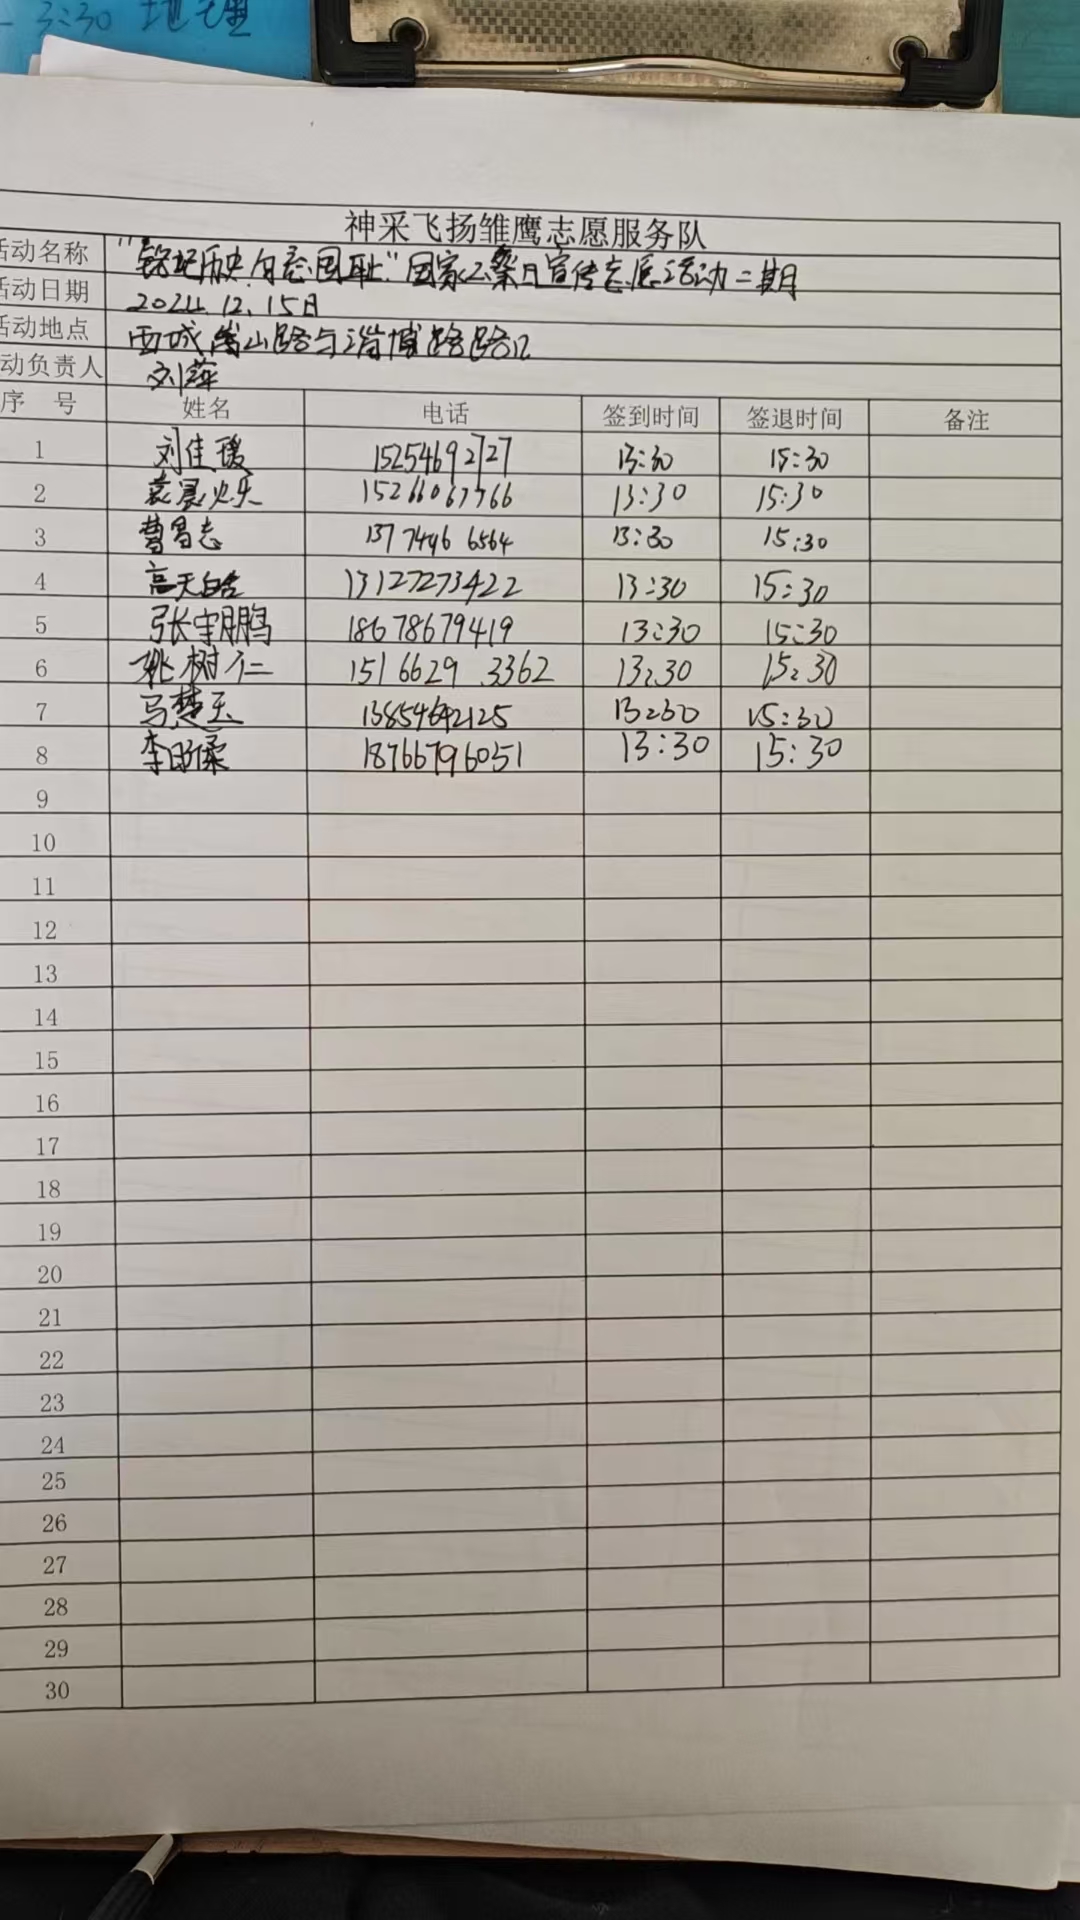 3:30 地理
神采飞扬雏鹰志愿服务队
活动名称 "铭记历史 勿忘国耻"国家公祭日宣传志愿活动二期
活动日期 2024.12.15日
活动地点 西城嵩山路与淄博路路口
活动负责人 刘萍
序 号 姓名 电话 签到时间 签退时间 备注
1 刘佳瑷 15254692727 13:30 15:30
2 袁晨 15266067766 13:30 15:30
3 曹昌志 137 7496 6564 13:30 15:30
4 高天皓 13127273422 13:30 15:30
5 张宇鹏 18678679419 13:30 15:30
6 姚树仁 1516629 3362 13:30 15:30
7 马楚玉 13854692125 13:30 15:30
8 李昭儒 18766796051 13:30 15:30
9
10
11
12
13
14
15
16
17
18
19
20
21
22
23
24
25
26
27
28
29
30